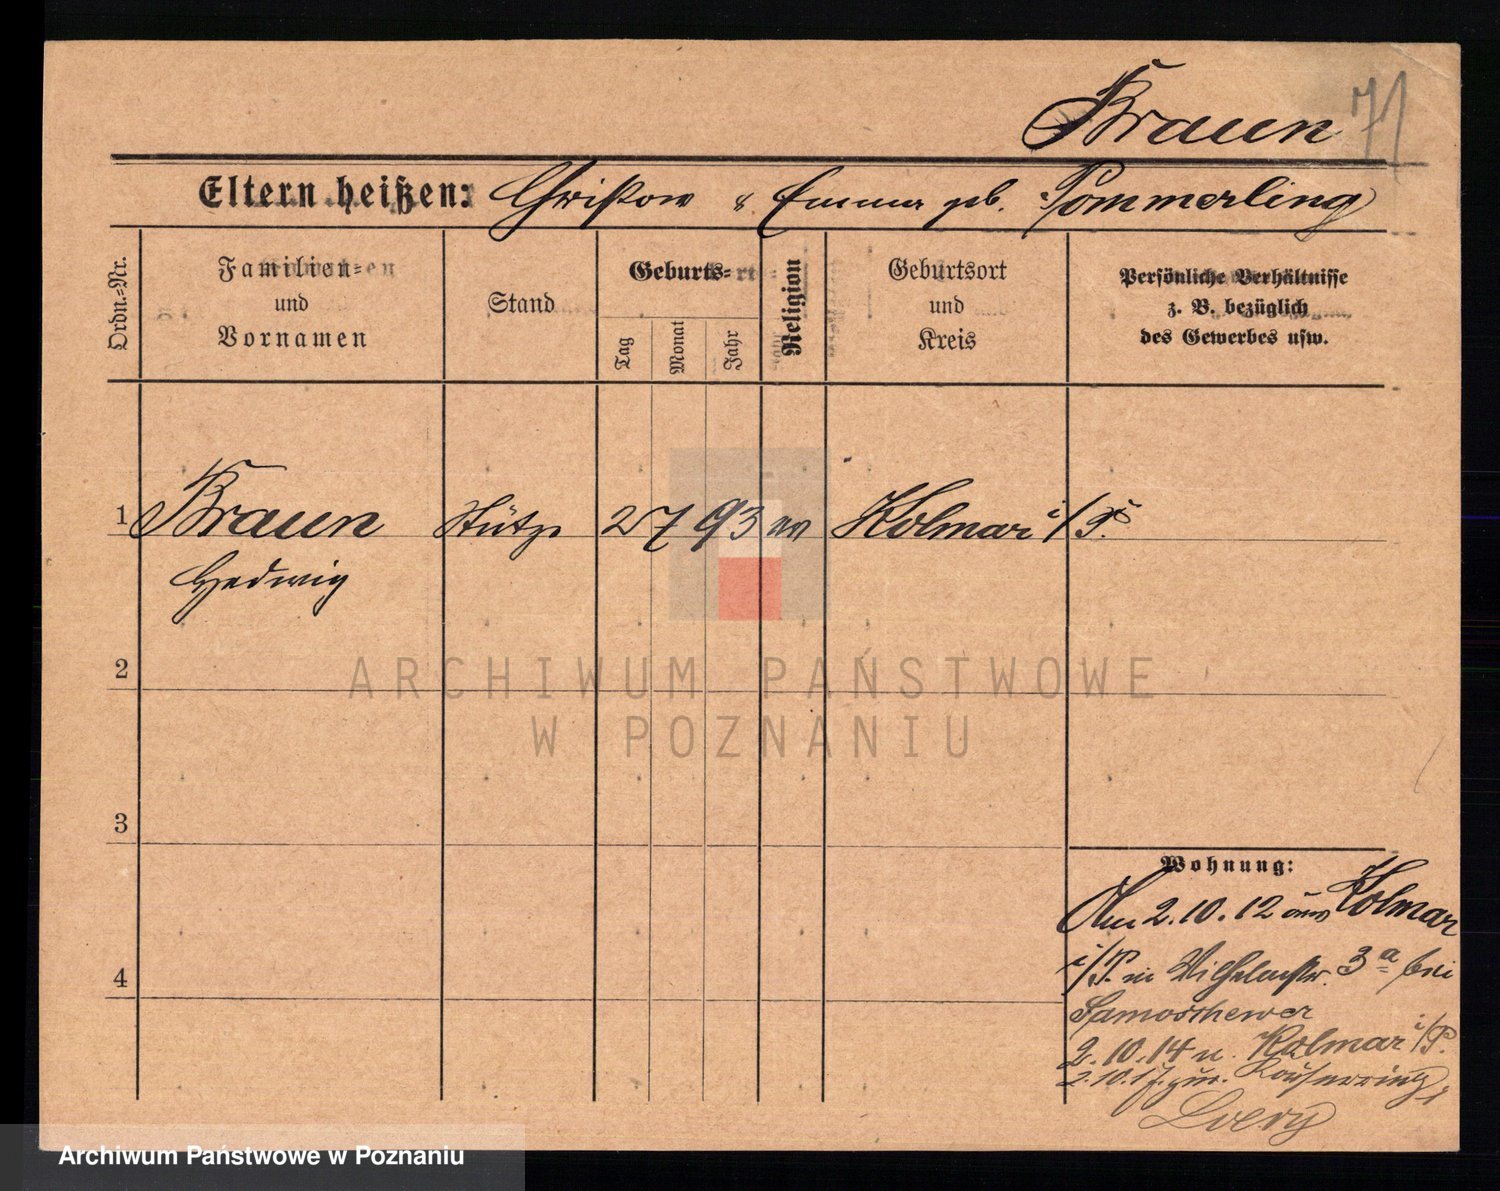 Braun 71
Eltern heißen: & Emma geb. Pommerling
Ordn.=Nr.
Familien=
und
Vornamen
Stand
Geburts=
Tag
Monat
Jahr
Religion
Geburtsort
und
Kreis
Persönliche Verhältnisse
z. B. bezüglich
des Gewerbes usw.
1 Braun Stütze 2 7 93 Kolmar i/P.
Hedwig
2
3
4
Wohnung:
Am 2.10.12 aus Kolmar
i/P. in Wilhelmstr. 3a bei
Samoschewer
2.10.14 n. Kolmar i/P.
2.10.17 zur.
Loevy
ARCHIWUM PAŃSTWOWE
W POZNANIU
Archiwum Państwowe w Poznaniu